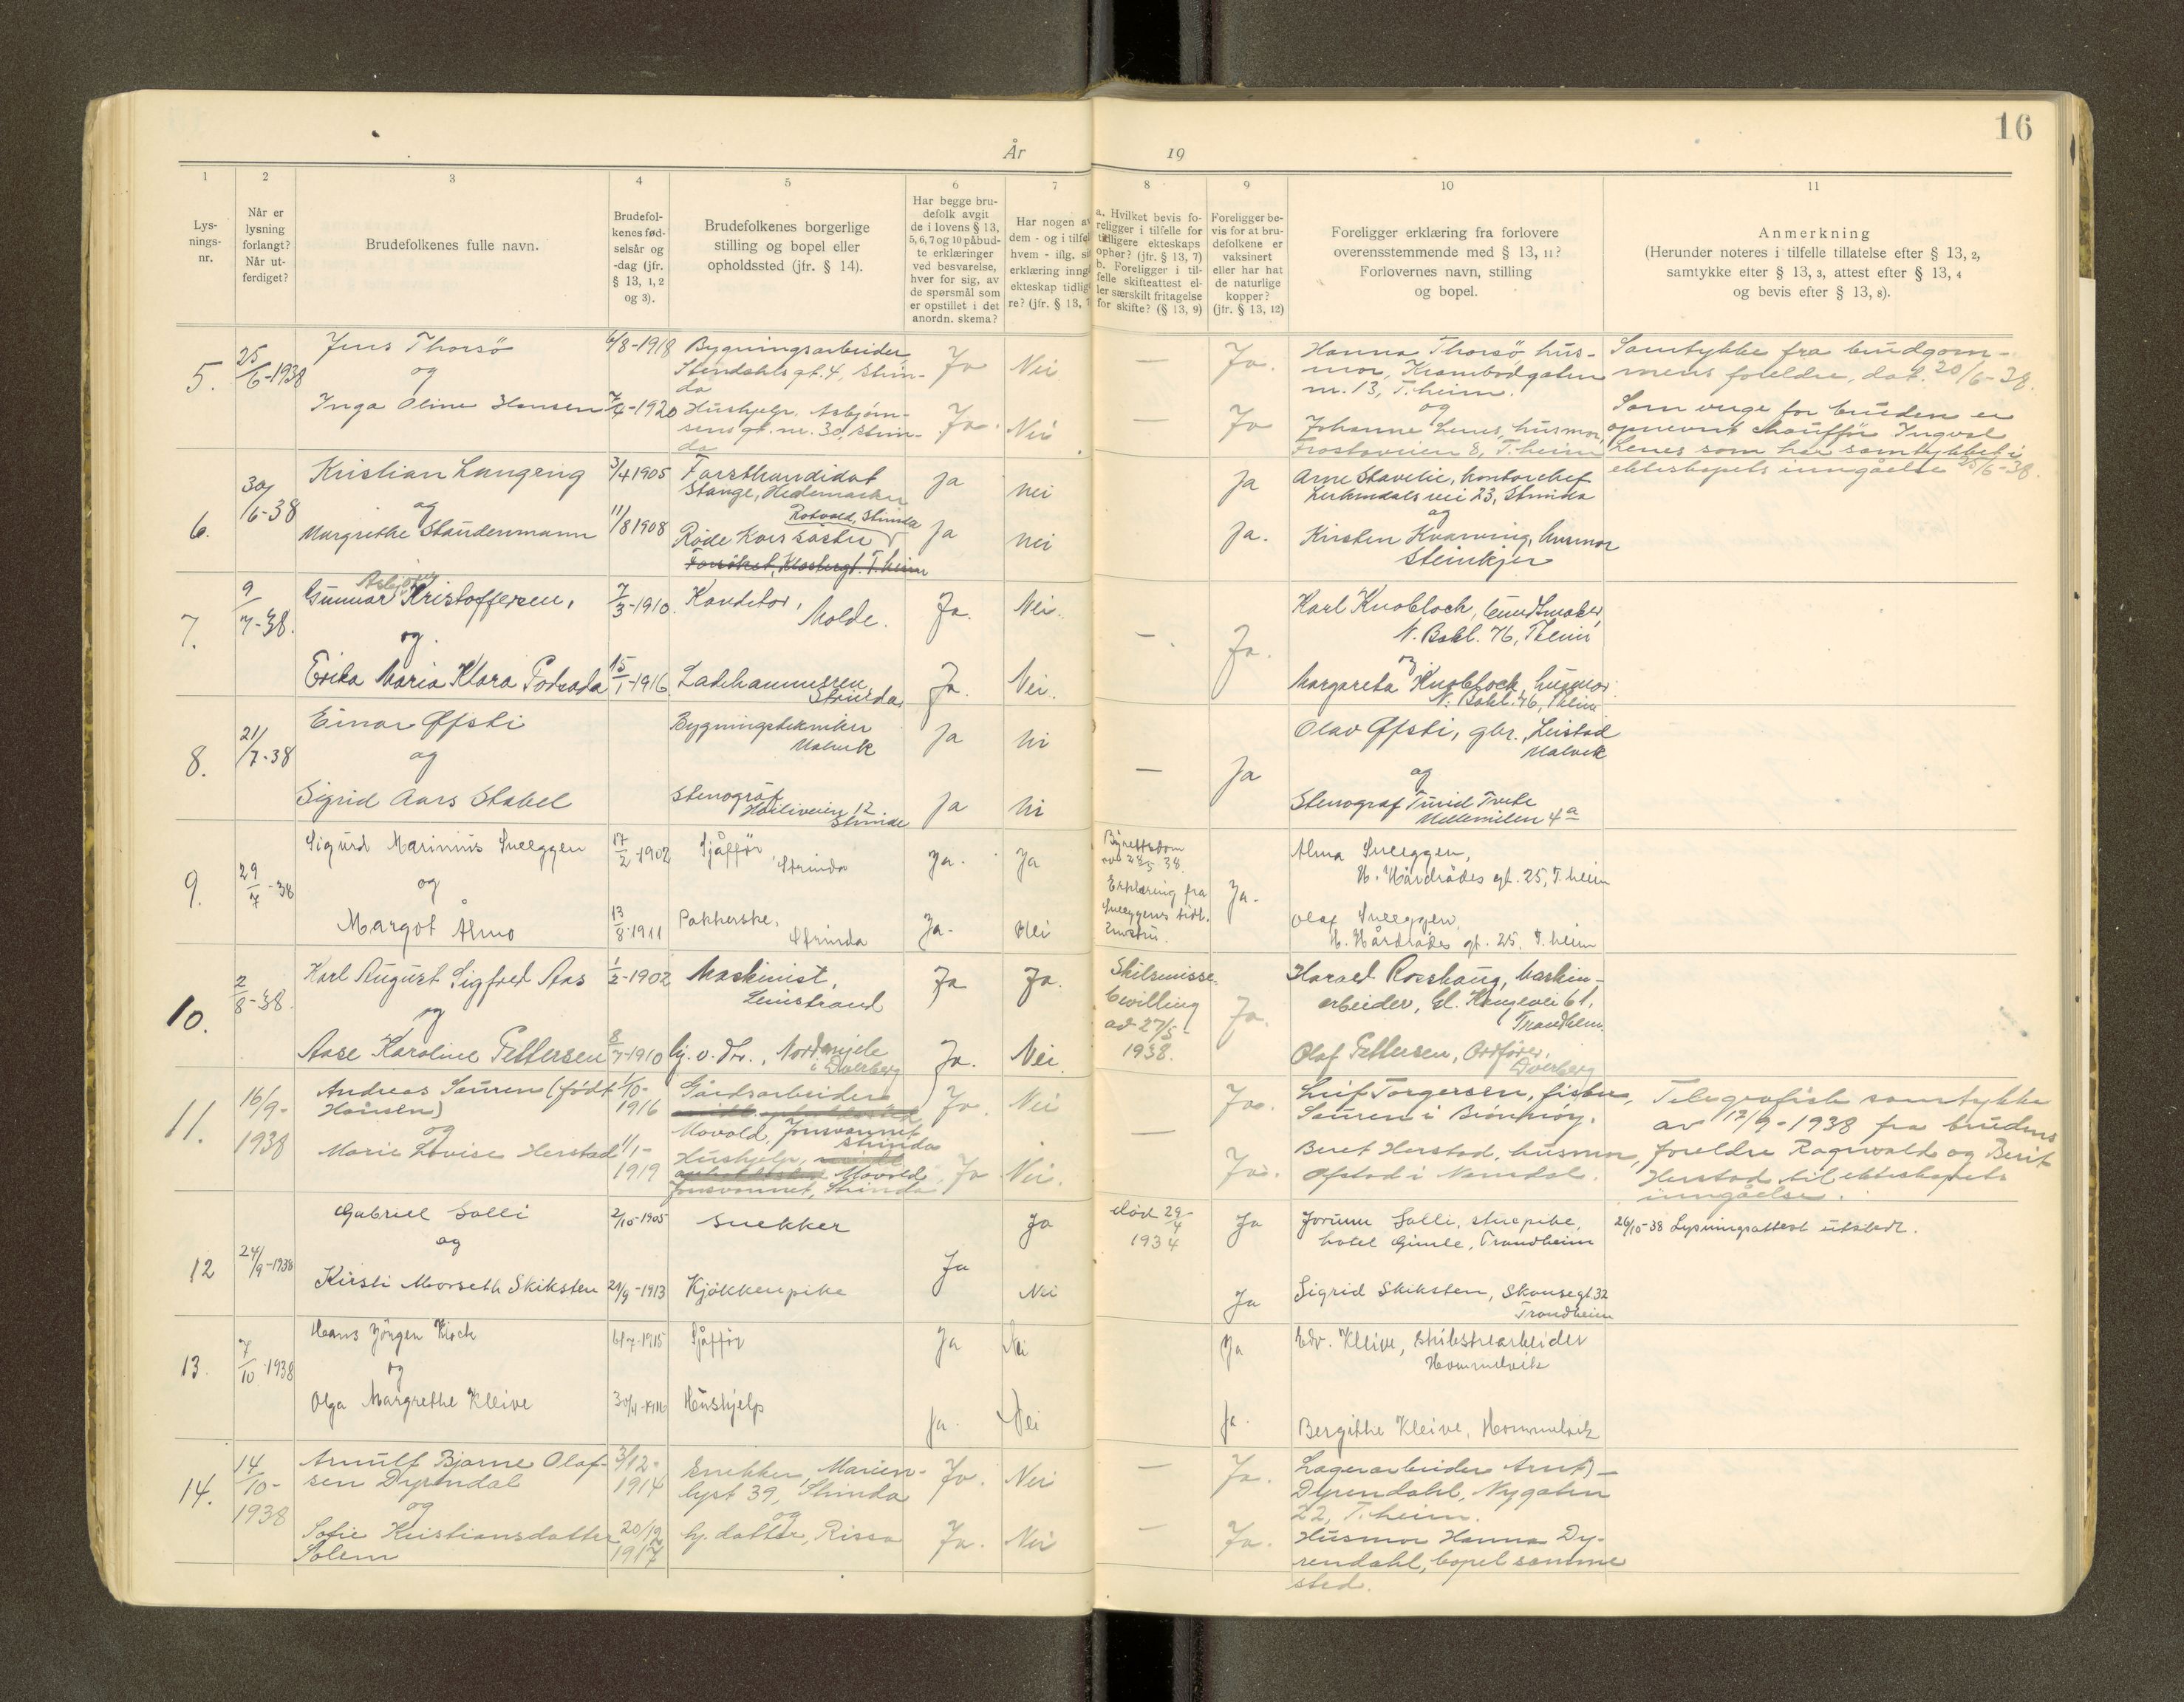 16
År 19
1 2 3 4 5 6 7 8 9 10 11
Lys-
nings-
nr.
Når er
lysning
forlangt?
Når ut-
ferdiget?
Brudefolkenes fulle navn.
Brudefol-
kenes fød-
selsår og
-dag (jfr.
§ 13, 1, 2
og 3).
Brudefolkenes borgerlige
stilling og bopel eller
opholdssted (jfr. § 14).
Har begge bru-
defolk avgit
de i lovens § 13,
5, 6, 7 og 10 påbud-
te erklæringer
ved besvarelse,
hver for sig, av
de spørsmål som
er opstillet i det
anordn. skema?
Har nogen av
dem - og i tilfel
hvem - iflg. s
erklæring inng
ekteskap tidlig
re? (jfr. § 13, 7
a. Hvilket bevis fo-
religger i tilfelle for
tidligere ekteskaps
ophør? (jfr. § 13, 7)
b. Foreligger i til-
felle skifteattest el-
ler særskilt fritagelse
for skifte? (§ 13, 9)
Foreligger be-
vis for at bru-
defolkene er
vaksinert
eller har hat
de naturlige
kopper?
(jfr. § 13, 12)
Foreligger erklæring fra forlovere
overensstemmende med § 13, 11?
Forlovernes navn, stilling
og bopel.
Anmerkning
(Herunder noteres i tilfelle tillatelse efter § 13, 2,
samtykke efter § 13, 3, attest efter § 13, 4
og bevis efter § 13, 8).
5.
25/6-1938
Jens Thorsö
og
Inga Oline Hansen
6/8-1918
7/4-1920
Bygningsarbeider,
Stendahls gt. 4, Strin-
da
Hushjelp, Asbjørn-
sens gt. nr. 30, Strin-
da
Ja Nei — Ja.
Ja. Nei — Ja
Hanna Thorsö, hus-
mor, Krambodgaten
nr. 13, T.heim.
og
Johanne Lenes, husmor,
Frostaveien 8, T.heim
Samtykke fra brudgom-
mens foreldre, dat. 20/6-38.
Som verge for bruden er
opnevnt chauffør Ingval
Lenes som har samtykket i
ekteskapets inngåelse 25/6-38.
6.
30/6-38
Kristian Langeng
og
Margrethe Staudenmann
3/4 1905
11/8 1908
Forstkandidat
Stange, Hedemarken
Rotvold, Strinda
Røde Kors søster
Ja nei Ja
Ja nei Ja.
Arne Stavlie, kontorchef
Lerkendalsvei 23, Strinda
og
Kirsten Kvarving, husmor
Steinkjer
7.
9/7-38.
Asbjørn
Gunnar Kristoffersen,
og
Erika Maria Klara Podsada
7/3-1910.
15/1-1916
Konditor,
Molde.
Ladehammeren
Strinda
Ja. Nei. —. Ja.
Ja. Nei.
Karl Knobloch, buntmaker,
N. Bakl. 76, T.heim
og
Margareta Knobloch, husmor
N. Bakl. 76, T.heim
8.
21/7-38
Einar Øfsti
og
Sigrid Aars Stabel
Bygningstekniker
Malvik
Stenograf
12.
Strinda
Ja Ni — Ja
Ja Ni
Olav Øfsti, gbr., Leistad
Malvik
og
Stenograf Turid Tvete
Mellemilen 4a
9.
29/7-38
Sigurd Marinius Sveeggen
og
Margot Almo
17/2-1902
13/8-1911
Sjåffør
Strinda
Pakkerske,
Strinda
Ja. Ja
Ja. Nei
Byrettsdom
av 28/5 38.
Erklæring fra
Sveeggens tidl.
hustru.
Ja.
Alma Sveeggen,
H. Hårdrådes gt. 25, T.heim
Olaf Sveeggen,
H. Hårdrådes gt. 25. T.heim
10.
2/8-38.
Karl August Sigfred Aas
og
Aase Karoline Pettersen
1/2-1902
8/7-1910
Maskinist,
Leinstrand
hj. v. dtr., Nordmjele
i Dverberg
Ja Ja.
Ja. Nei.
Skilsmisse-
bevilling
av 27/5-
1938.
Ja.
Harald Rosshaug, maskin-
arbeider, Gl. Kongevei 61,
Trondheim.
Olaf Pettersen, Ordfører,
Dverberg
11.
16/9-
1938
Andreas Sauren (født
Hansen)
og
Marie Lovise Herstad
1/10-
1916
11/1-
1919
Gårdsarbeider
Movold, Jonsvannet
Strinda
Hushjelp,
Movold
Jonsvannet, Strinda
Ja. Nei — Ja.
Ja Nei. Ja.
Leif Torgersen, fisker,
Sauren i Brönnöy.
Beret Herstad, husmor,
Ofstad i Namdal.
Telegrafisk samtykke
av 17/9-1938 fra brudens
foreldre Ragnvald og Berit
Herstad til ekteskapets
inngåelse.
12
24/9-1938
Gabriel Solli
og
Kirsti Morseth Skiksten
2/10-1905
29/9-1913
Snekker
Kjökkenpike
Ja
Ja
Nei
död 29/4
1934
Ja
Ja
Jorunn Solli, stuepike,
hotel Gimle, Trondheim
Sigrid Skiksten, Skansegt. 32
Trondheim
26/10-38 Lysningsattest utstedt.
13.
7/10-1938
Hans Jörgen Kisch
og
Olga Margrethe Kleive
6/7-1915
Sjåffør
Hushjelp
Ja Nei Ja
Ja. Nei Ja.
Edv. Kleive,
Hommelvik
Bergithe Kleive, Hommelvik
14.
14/10-
1938
Arnulf Bjarne Olaf-
sen Dyrendal
og
Sofie Kristiansdatter
Solem
3/12-
1914
20/12
1917
Snekker, Marien-
lyst 39, Strinda
og
hj. datter, Rissa
Ja. Nei — Ja.
Ja. Nei — Ja.
Lagerarbeider Arnt
Dyrendahl, Nygaten
22, T.heim.
Husmor Hanna Dy-
rendahl, bopel samme
sted.